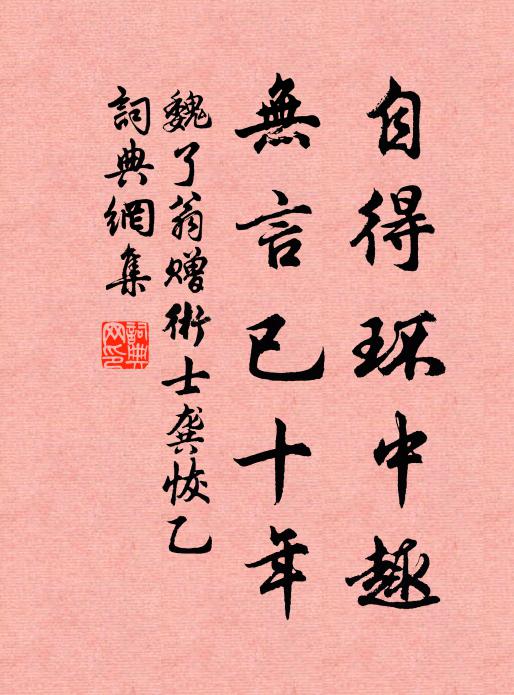 自得环中趣
無言已十年
魏了翁赠術士龚恢乙
詞典網集
詞典網印